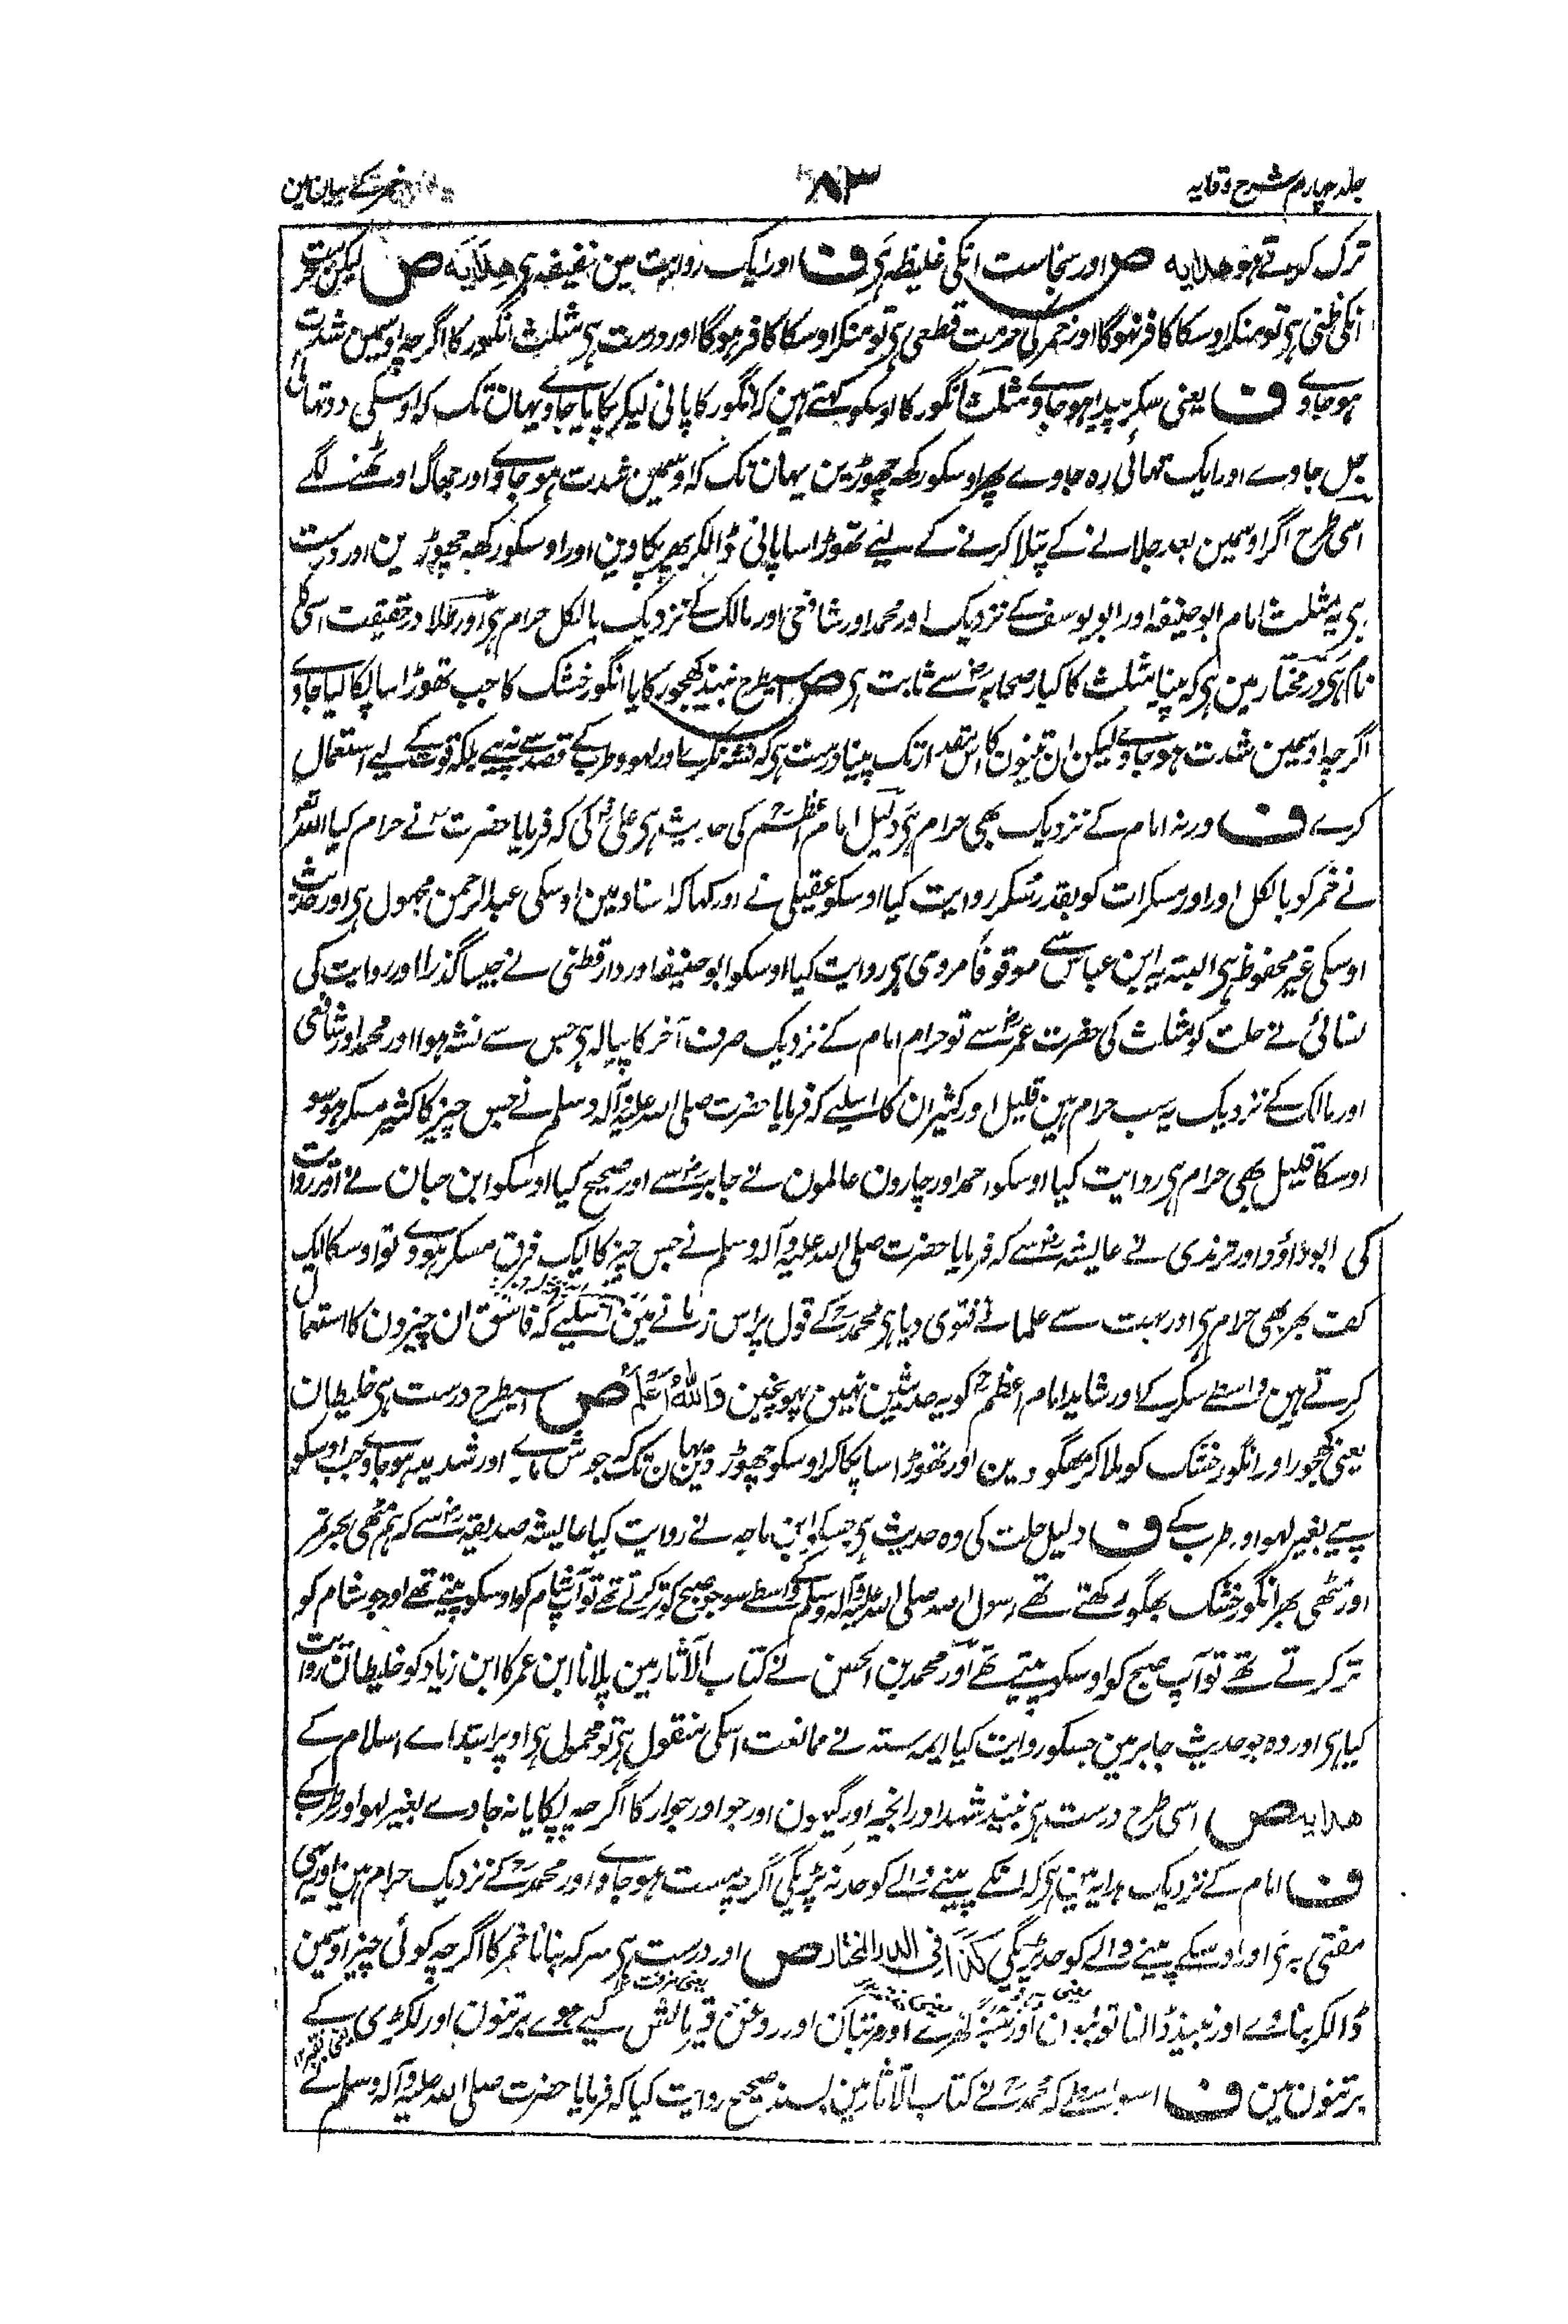 جلد چہارم شرح وقایہ
۸۳
خمر کے بیان مین
ترک کرتے ہو ھدایہ ص اور نجاست انکی غلیظہ ہی ف اور ایک روایت مین خفیفہ ہی ھدایہ ص لیکن حرمت
انکی ظنی ہی تو منکر اوسکا کافر نہوگا اور خمر کی حرمت قطعی ہی تو منکر اوسکا کافر ہوگا اور درست ہی مثلث انگور کا اگرچہ اوسمین شدت
ہو جاوے ف یعنی سکر پیدا ہو جاوے مثلث انگور کا اوسکو کہتے ہین کہ انگور کا پانی لیکر پکایا جاوے یہان تک کہ اوسکی دو تہائی
جل جاوے اور ایک تہائی رہ جاوے پھر اوسکو رکھ چھوڑین یہان تک کہ اوسمین شدت ہو جاوے اور جھاگ اوٹھنے لگے
اسی طرح اگر اوسمین بعد جلانے کے پتلا کرنے کے لیے تھوڑا سا پانی ڈالکر پھر پکاوین اور اوسکو رکھ چھوڑین اور درست
ہی یہ مثلث امام ابو حنیفہ اور ابو یوسف کے نزدیک اور محمد اور شافعی اور مالک کے نزدیک بالکل حرام ہی اور طلا در حقیقت اسی کا
نام ہی در مختار مین ہی کہ پینا مثلث کا کبار صحابہ رض سے ثابت ہی ص اسیطرح نبیذ کھجور کا یا انگور خشک کا جب تھوڑا سا پکا لیا جاوے
اگرچہ اوسمین شدت ہو جاوے لیکن ان تینون کا اس مقدار تک پینا درست ہی کہ نشہ نکرے اور لہو و طرب کے قصد سے نہ پیے بلکہ قوت کے لیے استعمال
کرے ف ورنہ امام کے نزدیک بھی حرام ہی دلیل امام اعظم رح کی حدیث ہی علی رض کی کہ فرمایا حضرت ص نے حرام کیا اللہ تعالی
نے خمر کو بالکل اور اور مسکرات کو بقدر سُکر روایت کیا اوسکو عقیلی نے اور کہا کہ اسناد مین اوسکی عبد الرحمن مجہول ہی اور حدیث
اوسکی غیر محفوظ ہی البتہ یہ ابن عباس سے موقوفاً مروی ہی روایت کیا اوسکو ابو حنیفہ اور دارقطنی نے جیسا گذرا اور روایت کی
نسائی نے حلت کو مثلث کی حضرت عمر رض سے تو حرام امام کے نزدیک صرف آخر کا پیالہ ہی جس سے نشہ ہوا اور محمد اور شافعی
اور مالک کے نزدیک یہ سب حرام ہین قلیل اور کثیر ان کا اسلیے کہ فرمایا حضرت صلی اللہ علیہ وآلہ وسلم نے جس چیز کا کثیر مسکر ہو سو
اوسکا قلیل بھی حرام ہی روایت کیا اوسکو احمد اور چارون عالمون نے جابر رض سے اور صحیح کیا اوسکو ابن حبان نے اور روایت
کی ابو داؤد اور ترمذی نے عایشہ رض سے کہ فرمایا حضرت صلی اللہ علیہ وآلہ وسلم نے جس چیز کا ایک فرق مسکر ہووے تو اوسکا ایک
کف بھر بھی حرام ہی اور بہت سے علما نے فتوی دیا ہی محمد رح کے قول پر اس زمانے مین اسلیے کہ فاسق ان چیزون کا استعمال
کرتے ہین واسطے سکر کے اور شاید امام اعظم رح کو یہ حدیثین نہین پہونچین وَاللّٰہُ اَعْلَمُ ص اسیطرح درست ہی خلیطان
یعنی کھجور اور انگور خشک کو ملا کر بھگو دین اور تھوڑا سا پکا کر اوسکو چھوڑ دین یہان تک کہ جوش مارے اور شدید ہو جاوے جب اوسکو
پیے بغیر لہو اور طرب کے ف دلیل حلت کی وہ حدیث ہی جسکو ابن ماجہ نے روایت کیا عایشہ صدیقہ رض سے کہ ہم مٹھی بھر تمر
اور مٹھی بھر انگور خشک بھگو رکھتے تھے رسول اللہ صلی اللہ علیہ وآلہ وسلم کے واسطے سو جو صبح کو تر کرتے تھے تو آپ شام کو اوسکو پیتے تھے اور جو شام کو
تر کرتے تھے تو آپ صبح کو اوسکو پیتے تھے اور محمد بن الحسن نے کتاب الآثار مین پلانا ابن عمر کا ابن زیاد کو خلیطان روایت
کیا ہی اور وہ جو حدیث جابر مین جسکو روایت کیا ایمہ ستہ نے ممانعت اسکی منقول ہی تو محمول ہی اوپر ابتداے اسلام کے
ھدایہ ص اسی طرح درست ہی نبیذ شہد اور انجیر اور گیہون اور جو اور جوار کا اگرچہ پکایا نہ جاوے بغیر لہو اور طرب کے
ف امام کے نزدیک ہدایہ مین ہی کہ انکے پینے والے کو حد نہ پڑیگی اگرچہ مست ہو جاوے اور محمد رح کے نزدیک حرام ہین اور یہی
مفتی بہ ہی اور اوسکے پینے والے کو حد پڑیگی کَذَا فِی الدر المختار ص اور درست ہی سرکہ بنانا خمر کا اگرچہ کوئی چیز اوسمین
ڈالکر بناوے اور نبیذ ڈالنا تونبون اور سبز گھڑے اور مرتبان اور روغن قیر مالش کیے ہوے برتنون اور لکڑی کے
برتنون مین ف اسواسطے کہ محمد رح نے کتاب الآثار مین بسند صحیح روایت کیا کہ فرمایا حضرت صلی اللہ علیہ وآلہ وسلم نے